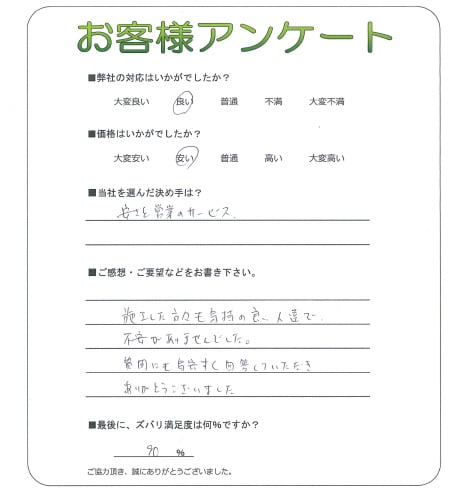 お客様アンケート
■弊社の対応はいかがでしたか？
大変良い 良い 普通 不満 大変不満
■価格はいかがでしたか？
大変安い 安い 普通 高い 大変高い
■当社を選んだ決め手は？
安さと営業のサービス.
■ご感想・ご要望などをお書き下さい。
施工した方々も気持の良い人達で
不安がありませんでした。
質問にも気安すく回答していただき
ありがとうございました
■最後に、ズバリ満足度は何%ですか？
90 %
ご協力頂き、誠にありがとうございました。